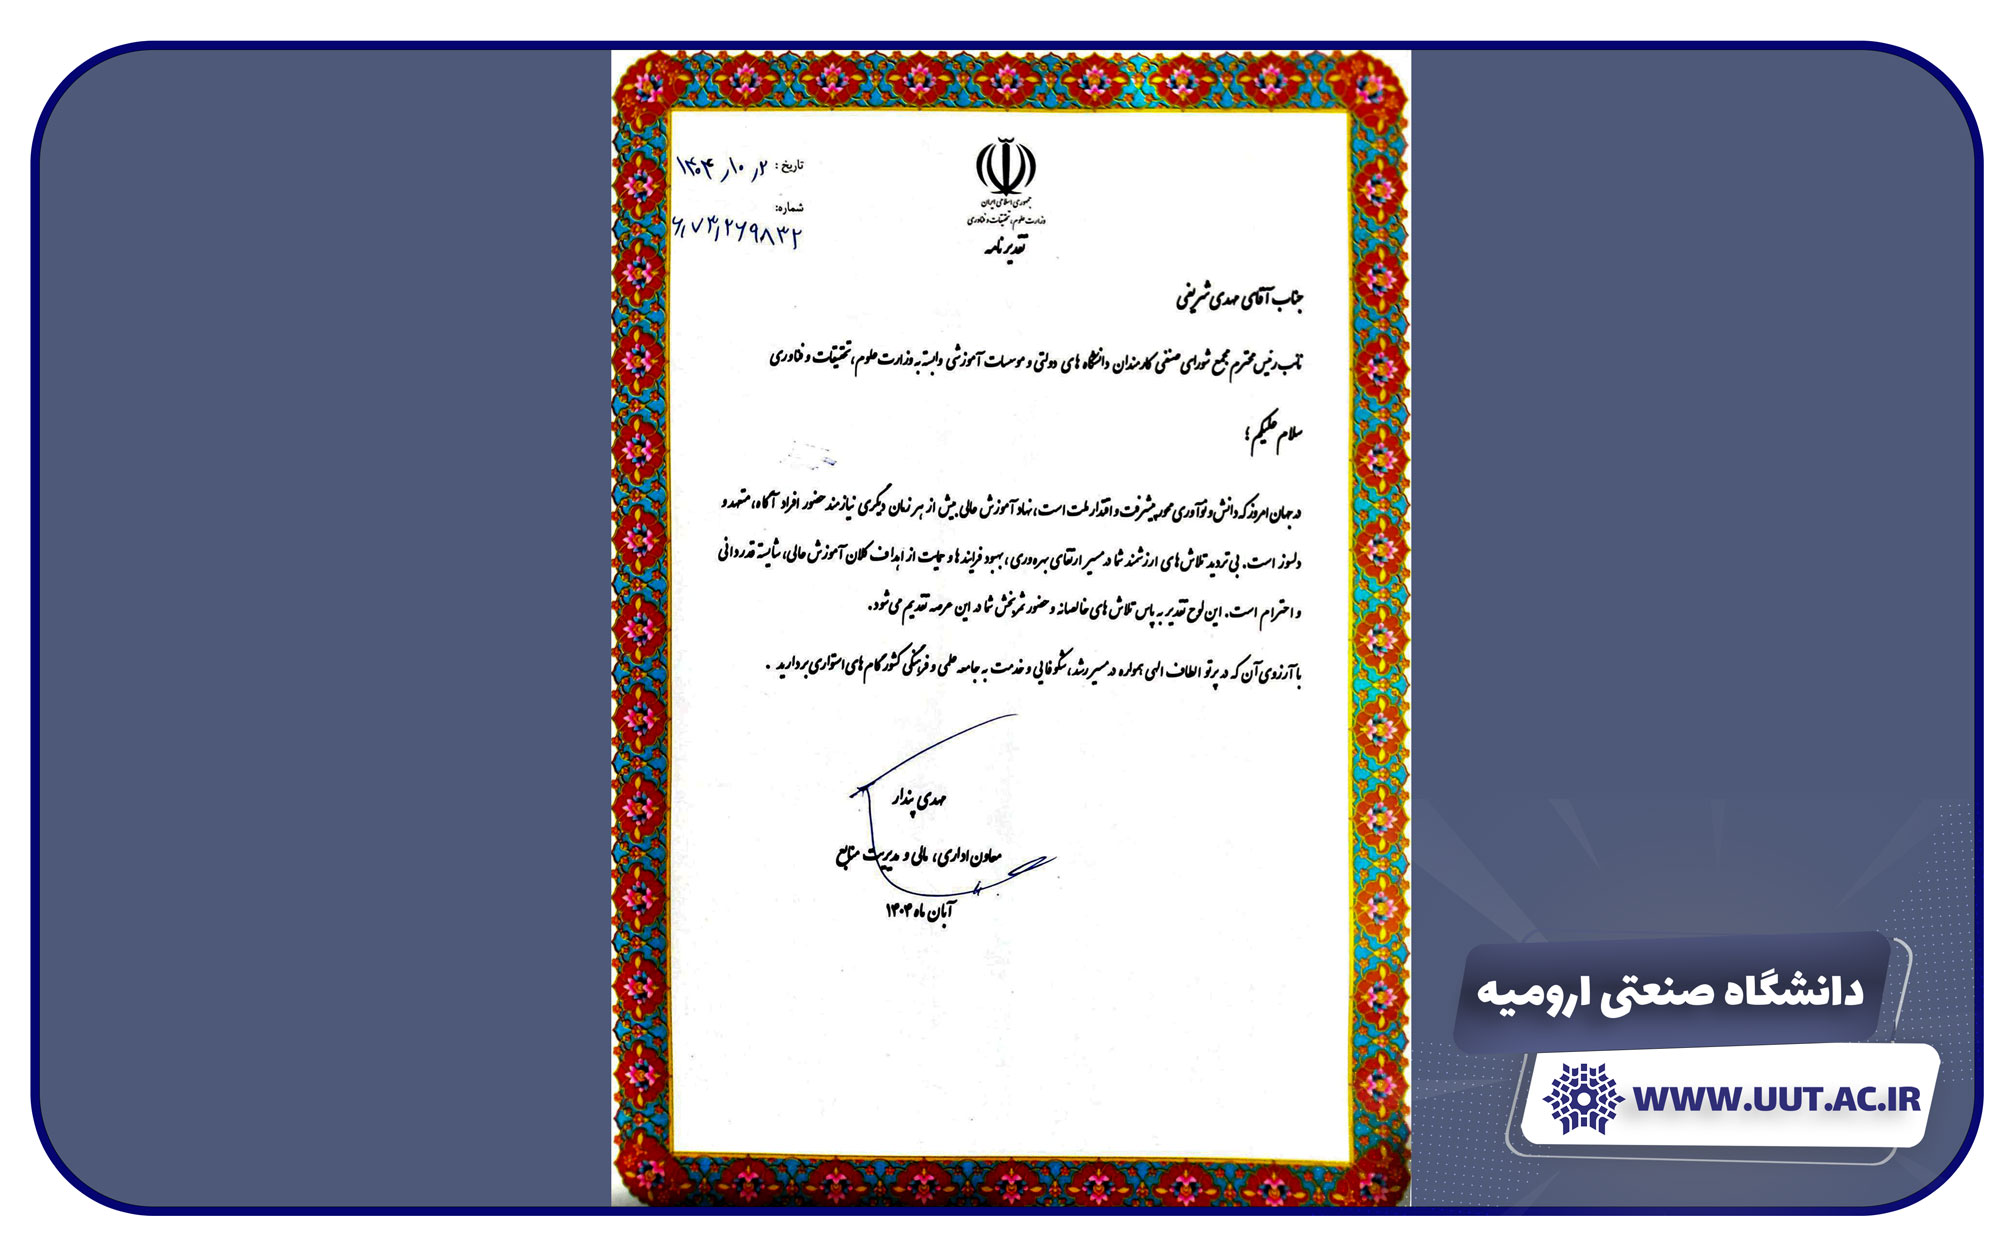 جمهوری اسلامی ایران
وزارت علوم، تحقیقات و فناوری
تقدیرنامه
تاریخ : ۱۴۰۴ ر ۱۰ ر ۲
شماره:
۶ر۷۳ر۲۶۹۸۳۲
جناب آقای مهدی شریفی
نائب رئیس محترم مجمع شورای صنفی کارمندان دانشگاه های دولتی و موسسات آموزشی وابسته به وزارت علوم، تحقیقات و فناوری
سلام علیکم ؛
در جهان امروز که دانش و نوآوری محور پیشرفت و اقتدار ملت است، نهاد آموزش عالی بیش از هر زمان دیگری نیازمند حضور افراد آگاه، متعهد و
دلسوز است. بی تردید تلاش های ارزشمند شما در مسیر ارتقای بهره وری، بهبود فرایندها و حمایت از اهداف کلان آموزش عالی، شایسته قدردانی
و احترام است. این لوح تقدیر به پاس تلاش های خالصانه و حضور ثمربخش شما در این عرصه تقدیم می شود.
با آرزوی آن که در پرتو الطاف الهی همواره در مسیر رشد، شکوفایی و خدمت به جامعه علمی و فرهنگی کشور گام های استواری بردارید .
مهدی پندار
معاون اداری، مالی و مدیریت منابع
آبان ماه ۱۴۰۴
دانشگاه صنعتی ارومیه
WWW.UUT.AC.IR